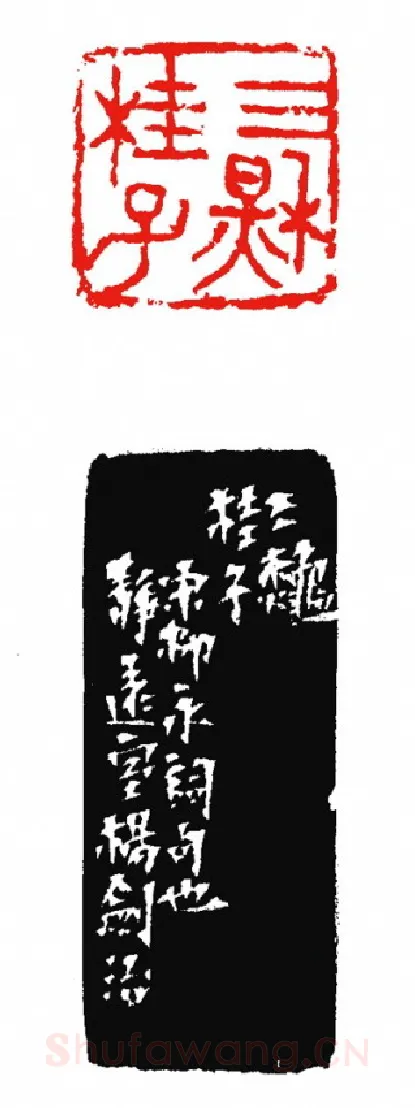 三秋
桂子
三龝
桂子
宋柳永詞句也
靜遠室楊劍治
Shufawang.CN